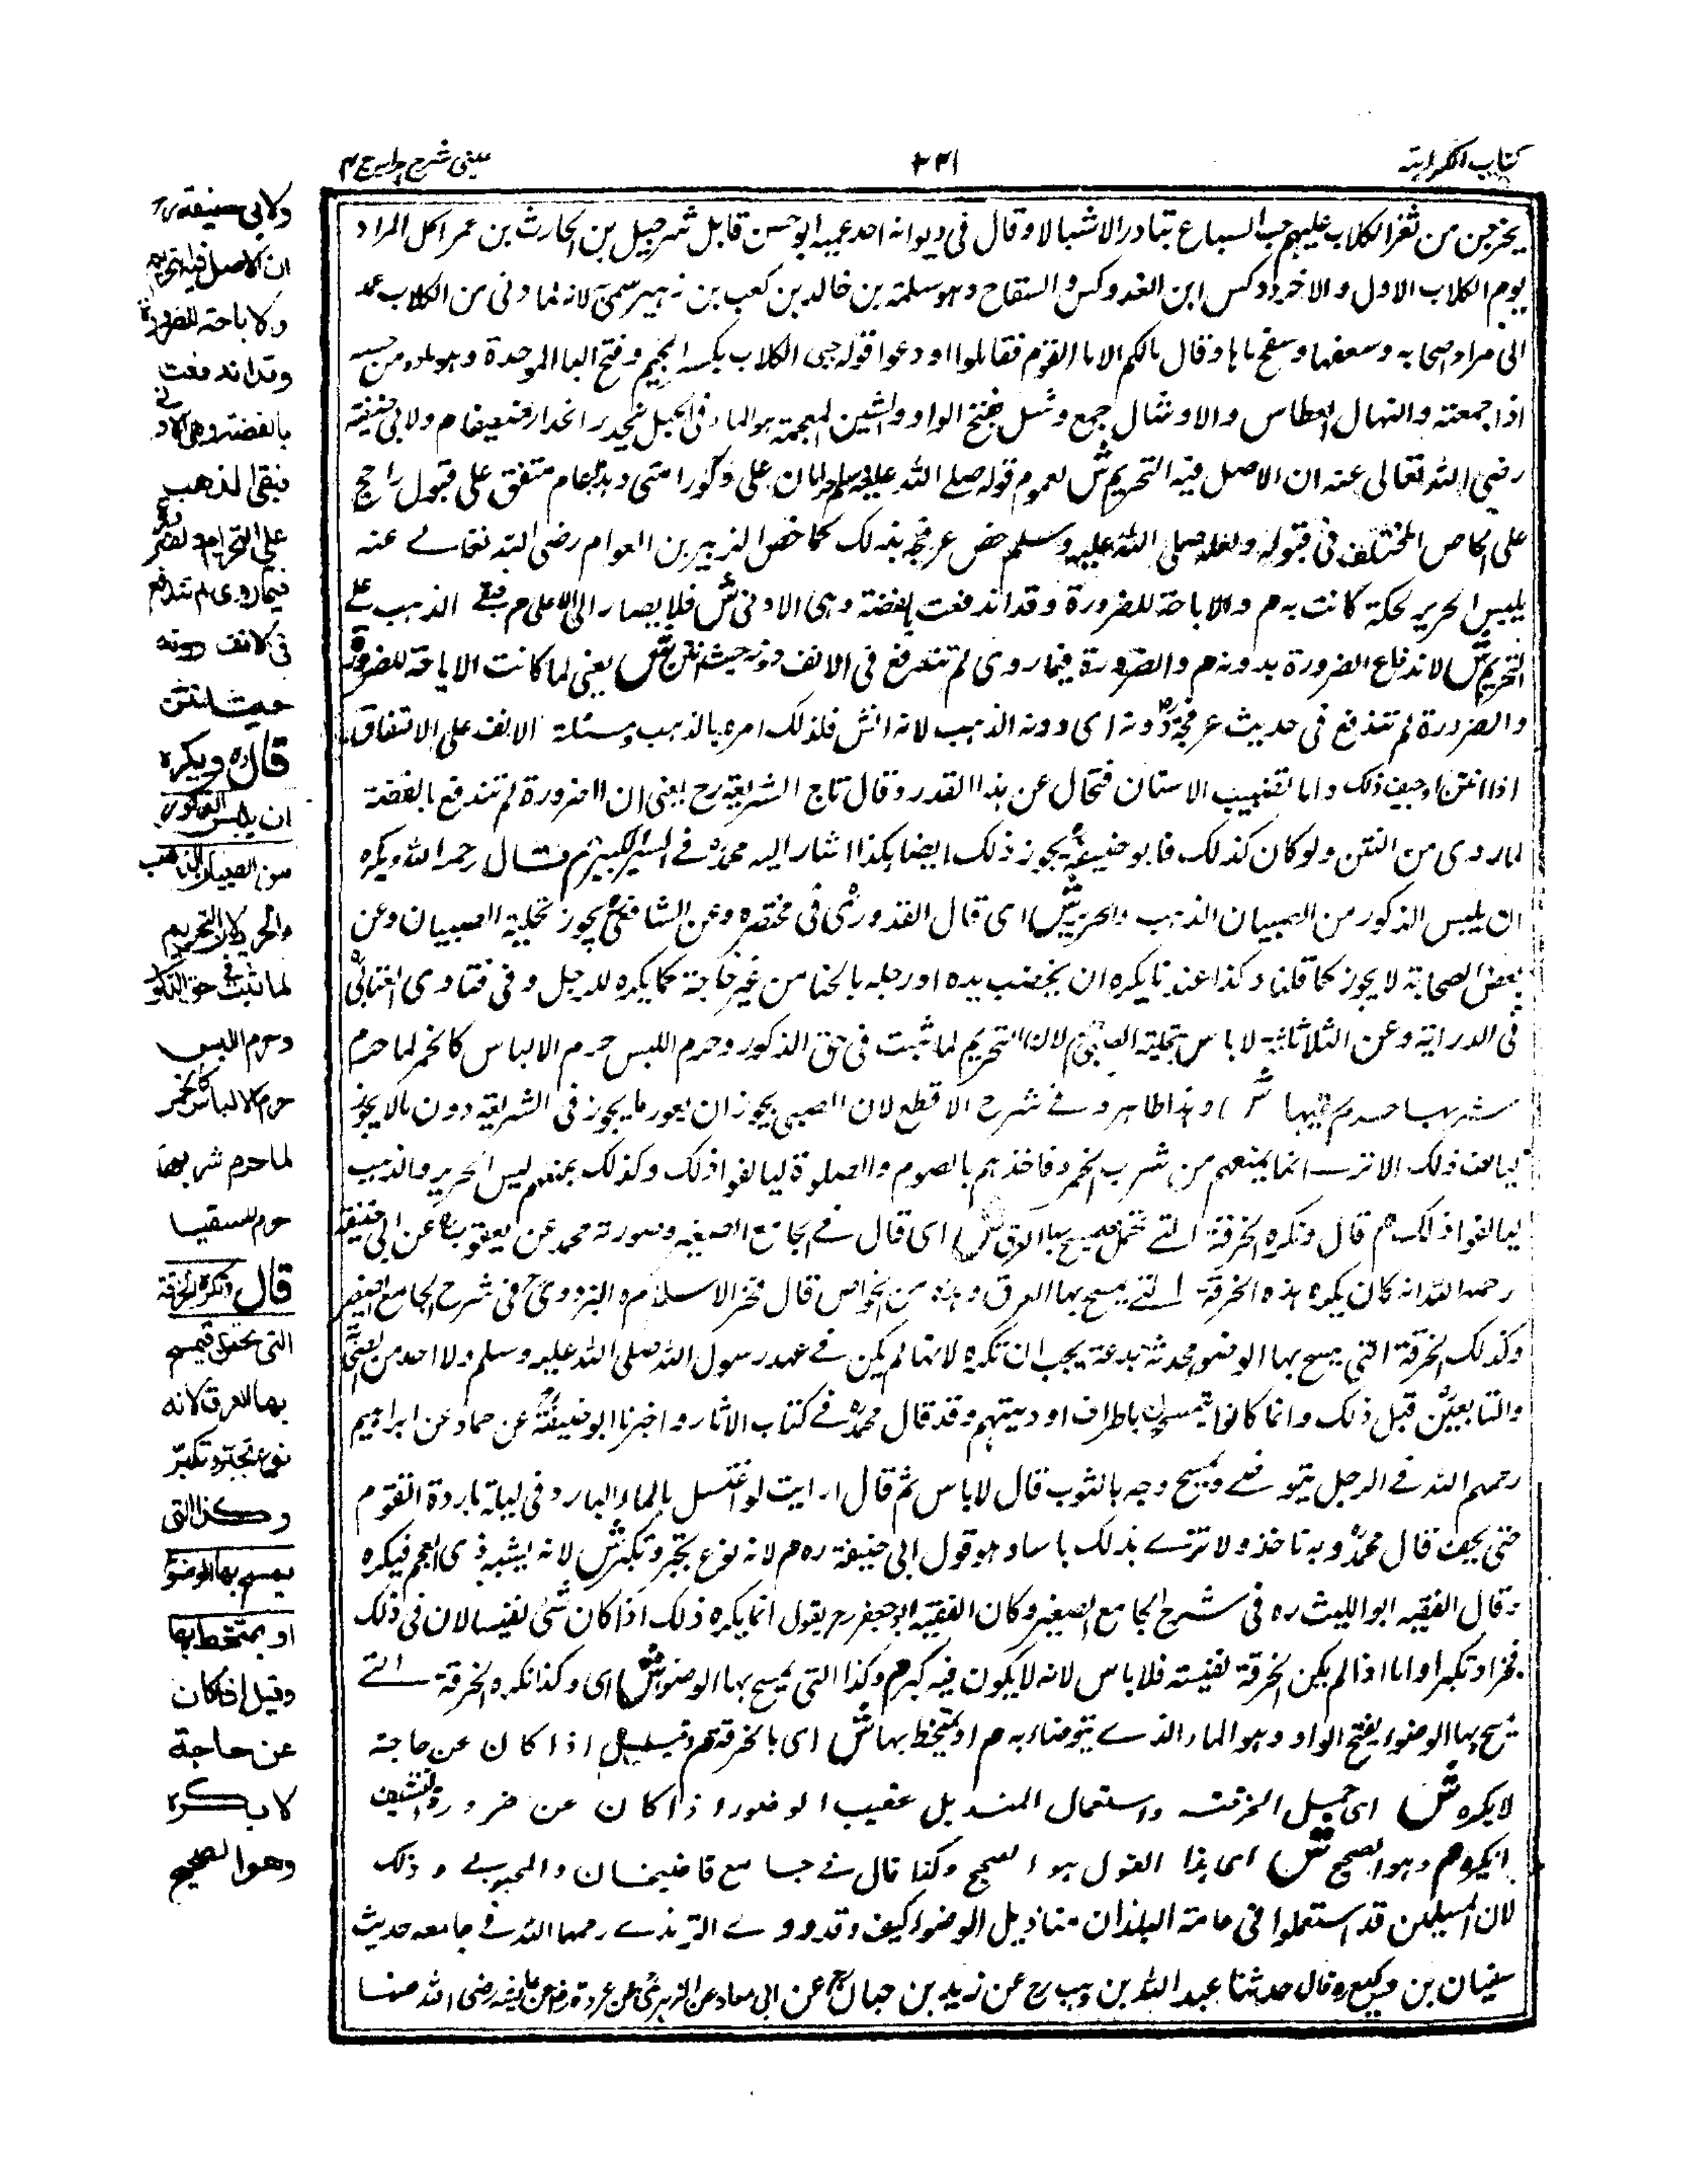 كتاب الكراهية
٢٣١
عيني شرح هداية ج ٤
يخرجن من ثغر الكلاب عليهم خبب السباع تبادر الاشبالا وقال في ديوانه احد عميه ابو حسن قاتل شرحبيل بن الحارث بن عمر اكل المراد
يوم الكلاب الاول والاخر دوكس ابن الفدوكس و السفاح وهو سلمة بن خالد بن كعب بن زهير سمى لانه لما دنى من الكلاب عمد
الى مراد اصحابه وسقح ماها وقال مالكم الا ما القوم فقاتلوا او دعوا قوله جبى الكلاب بكسر الجيم وفتح الباء الموحدة وهو من
اذا جمعته والنهال العطاس والاوشال جمع وشل بفتح الواو والشين المعجمة هو الماء في الجبل ينحدر انحدارا ضعيفا م ولابي حنيفة
رضي الله تعالى عنه ان الاصل فيه التحريم ش لعموم قوله صلى الله عليه وسلم حرامان على ذكور امتى وهذا عام متفق على قبول راجح
على الخاص المختلف في قبوله ولعله صلى الله عليه وسلم خص عرفجة بذلك كما خص الزبير بن العوام رضى الله تعالى عنه
بلبس الحرير لحكة كانت به م والاباحة للضرورة وقد اندفعت بالفضة وهى الادنى ش فلا يصار الى الاعلى م فبقى الذهب على
التحريم ش لاندفاع الضرورة بدونه م والضرورة فيما روى لم تندفع في الانف دونه حيث انتن ش يعنى لما كانت الاباحة للضرورة
والضرورة لم تندفع فى حديث عرفجة دونه اى دونه الذهب لانه انتن فلذلك امره بالذهب ومسئلة الانف على الاتفاق
اذا انتن اوجيف ذلك واما تضبيب الاسنان فخال عن هذا القدر وقال تاج الشريعة رح يعنى ان الضرورة لم تندفع بالفضة
لما روى من النتن ولو كان كذلك فابو حنيفة يجوز ذلك ايضا هكذا اشار اليه محمد فى السير الكبير م قال رحمه الله ويكره
ان يلبس الذكور من الصبيان الذهب والحرير ش اى قال القدورى فى مختصره وعن الشافعى يجوز تحلية الصبيان وعن
بعض اصحابه لا يجوز كما قلنا وكذا عندنا يكره ان يخضب يده او رجله بالحنا من غير حاجة كما يكره للرجل وفى فتاوى العتابى
فى الدراية وعن الثلاثة لا باس بتحلية الصبى م لان التحريم لما ثبت فى حق الذكور وحرم اللبس حرم الالباس كالخمر لما حرم
شربها حرم سقيها ش وهذا ظاهر و فى شرح الاقطع لان الصبى يجوز ان يعود ما يجوز فى الشريعة دون ما لا يجوز
ليالف ذلك الا ترى انما يمنعهم من شرب الخمر وفاخذهم بالصوم والصلوة ليالفوا ذلك وكذلك يمنعهم لبس الحرير والذهب
ليالفوا ذلك م قال وتكره الخرقة التى تحمل فيمسح بها العرق ش اى قال فى الجامع الصغير وصورته محمد عن يعقوب عن ابى حنيفة
رحمه الله انه كان يكره هذه الخرقة التى يمسح بها العرق وهذه من الخواص قال فخر الاسلام البزدوى فى شرح الجامع الصغير
وكذلك الخرقة التى يمسح بها الوضوء محدثة بدعة يجب ان تكره لانها لم يكن فى عهد رسول الله صلى الله عليه وسلم ولا احد من الصحابة
والتابعين قبل ذلك وانما كانوا يتمسحون باطراف اردیتهم وقد قال محمد فى كتاب الاثار واخبرنا ابو حنيفة عن حماد عن ابراهيم
رحمهم الله فى الرجل يتوضى ويمسح وجه بالثوب قال لا باس ثم قال ارايت لو اغتسل بالماء البارد فى ليلة باردة القوم
حتى يجف قال محمد وبه ناخذ ولا نرى بذلك باسا وهو قول ابى حنيفة ره م لانه نوع تجبر وتكبر ش لانه يشبه زى العجم فيكره
وقال الفقيه ابو الليث ره فى شرح الجامع الصغير وكان الفقيه ابو جعفر ح يقول انما يكره ذلك اذا كان شئ نفيسا لان فى ذلك
فخرا وتكبرا واما اذا لم يكن الخرقة نفيسة فلا باس لانه لا يكون فيه كبر م وكذا التى يمسح بها الوضوء ش اى وكذا تكره الخرقة التى
يمسح بها الوضوء بفتح الواو وهو الماء الذى يتوضاء به م او يتمخط بها ش اى بالخرقة م وقيل اذا كان عن حاجة
لا يكره ش اى حمل الخرقة واستعمال المنديل عقيب الوضوء اذا كان عن ضرورة التنشيف
لا يكره م وهو الصحيح ش اى هذا القول هو الصحيح وكذا قال فى جامع قاضيخان والمحبوبى وذلك
لان المسلمين قد استعملوا فى عامة البلدان مناديل الوضوء كيف وقد روى الترمذى رحمه الله فى جامعه حديث
سفيان بن وكيع ره قال حدثنا عبد الله بن وهب رح عن زيد بن حبان عن ابى معاذ عن الزهرى عن عروة رض عن عايشة رضى الله عنها
ولابى حنيفة
ان الاصل فيه التحريم
والاباحة للضرورة
وقد اندفعت
بالفضة وهى الادنى
فبقى الذهب
على التحريم والضرورة
فيما روى لم تندفع
فى الانف دونه
حيث انتن
قال ره ويكره
ان يلبس الذكور
من الصبيان الذهب
والحرير لان التحريم
لما ثبت فى حق الذكور
وحرم اللبس
حرم الالباس كالخمر
لما حرم شربها
حرم سقيها
قال وتكره الخرقة
التى تحمل فيمسح
بها العرق لانه
نوع تجبر وتكبر
وكذا التى
يمسح بها الوضوء
او يتمخط بها
وقيل اذا كان
عن حاجة
لا يكره
وهو الصحيح